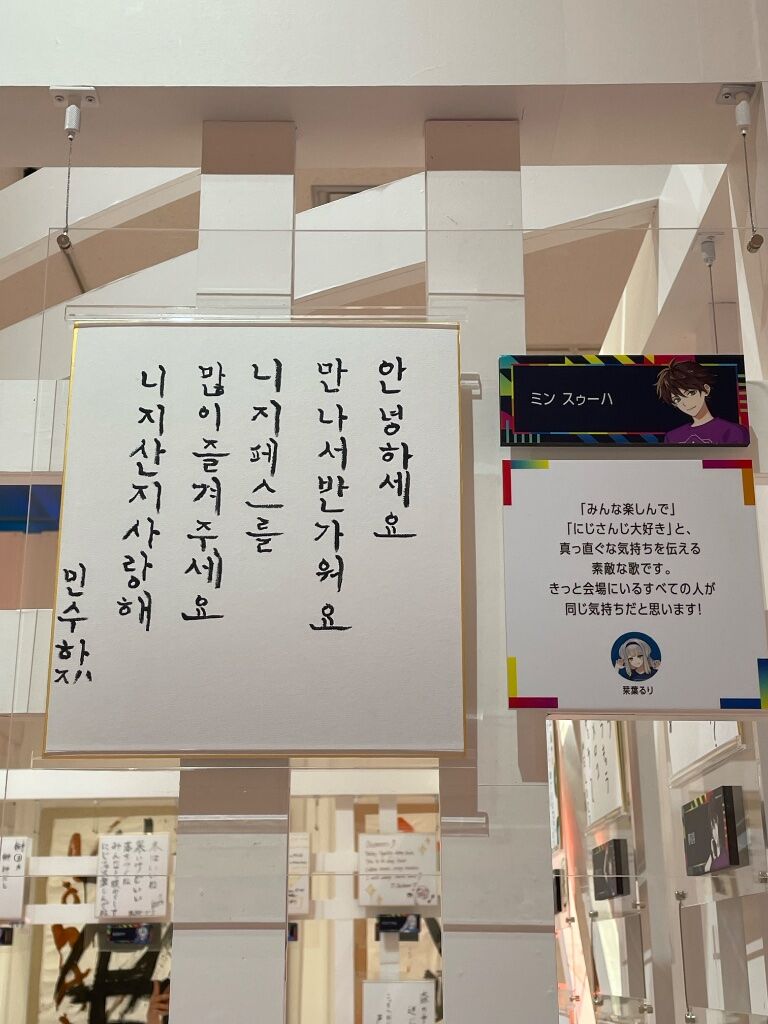 안녕하세요
만나서반가워요
니지페스를
많이즐겨주세요
니지산지사랑해
민수하
ミン スゥーハ
「みんな楽しんで」
「にじさんじ大好き」と、
真っ直ぐな気持ちを伝える
素敵な歌です。
きっと会場にいるすべての人が
同じ気持ちだと思います!
栞葉るり